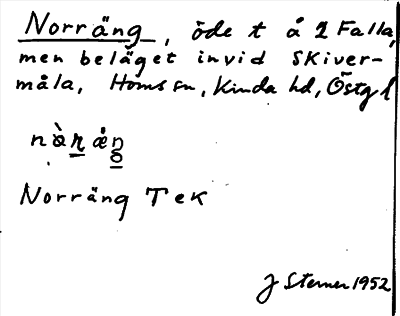 Norräng, öde t å 2 Falla,
men beläget invid Skiver-
måla, Homs sn, Kinda hd, Östgl
Norräng T e k
J Sterner 1952